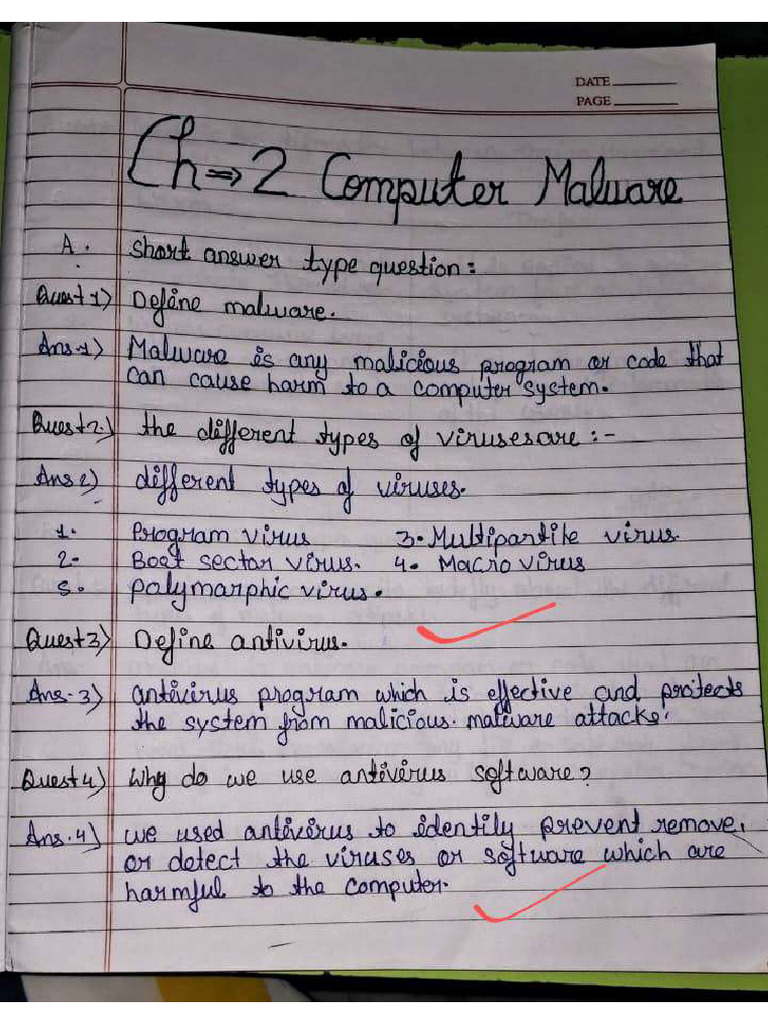 DATE
PAGE
Ch ⇒ 2 Computer Malware
A. Short answer type question:
Quest 1) Define malware.
Ans-1) Malware is any malicious program or code that
can cause harm to a computer system.
Quest 2.) the different types of viruses are :-
Ans 2) different types of viruses.
1. Program virus 3. Multipartite virus.
2. Boot sector virus. 4. Macro virus
5. Polymarphic virus.
Quest 3) Define antivirus.
Ans-3) antivirus program which is effective and protects
the system from malicious. malware attacks.
Quest 4) Why do we use antivirus software?
Ans.4) we used antivirus to identily prevent remove,
or detect the viruses or software which are
harmful to the computer.